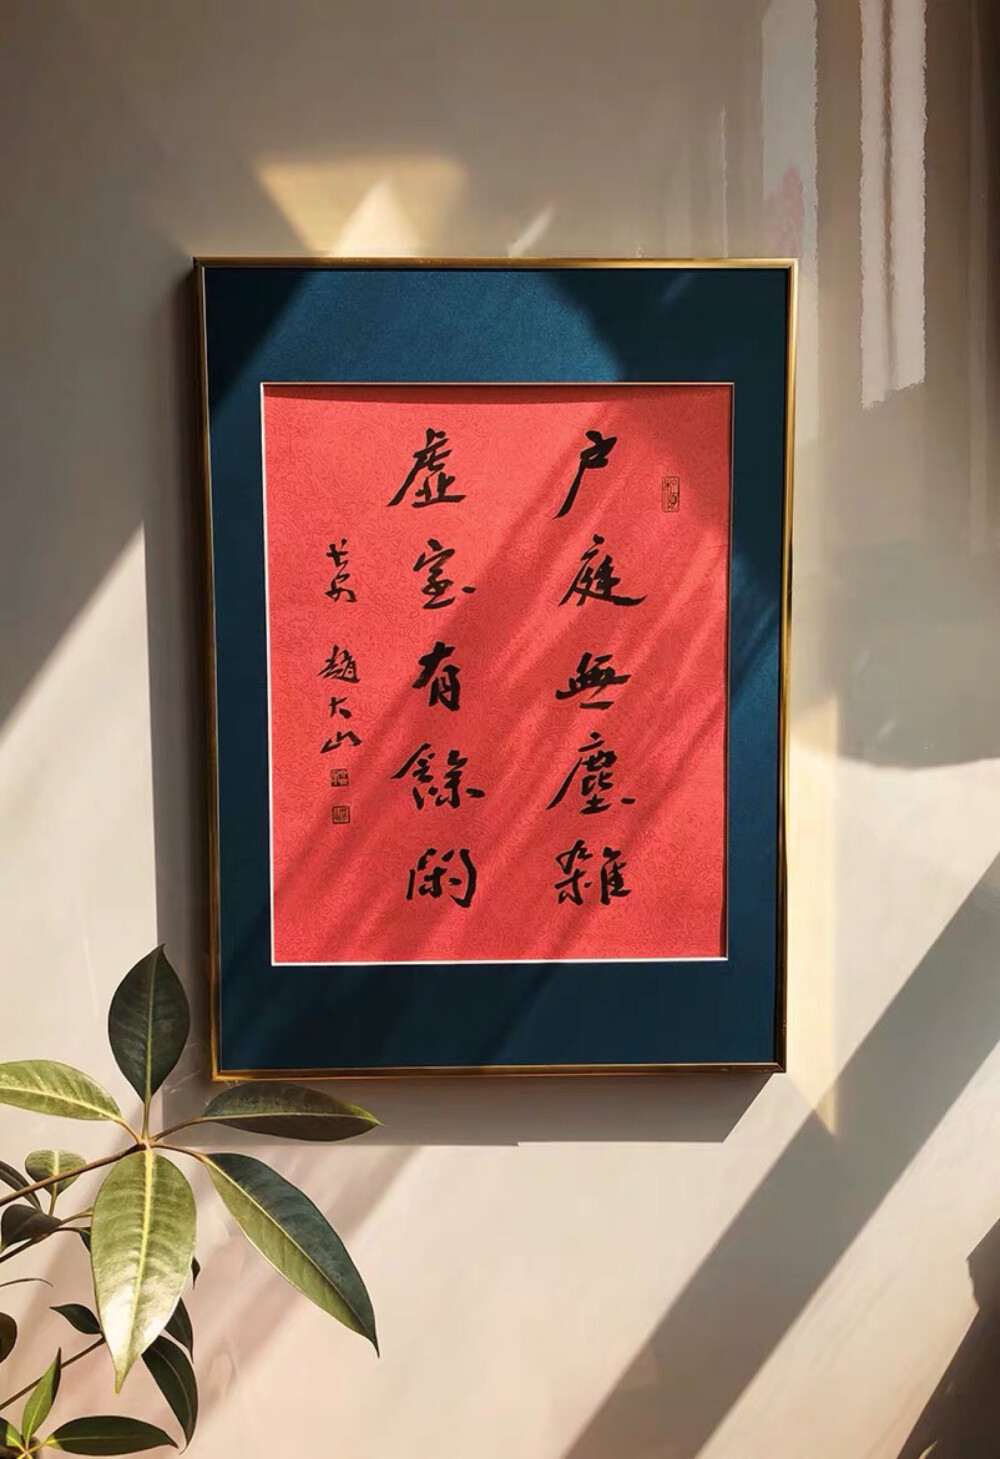 戶庭無塵雜
虛室有餘閑
長安 趙大山